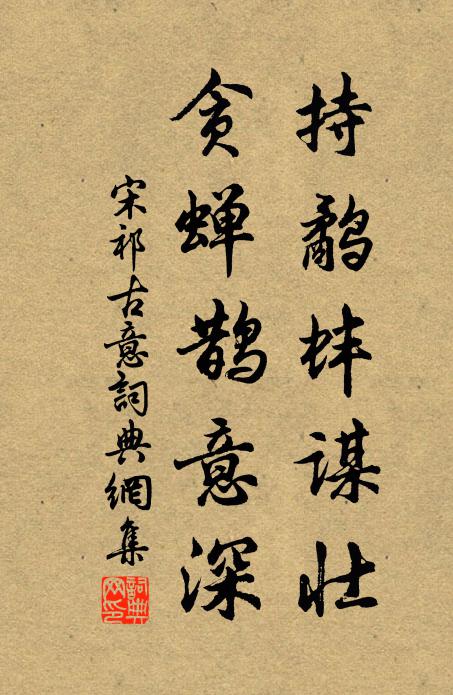 持鹬蚌谋壮
贪蝉鹊意深
宋祁古意詞典網集